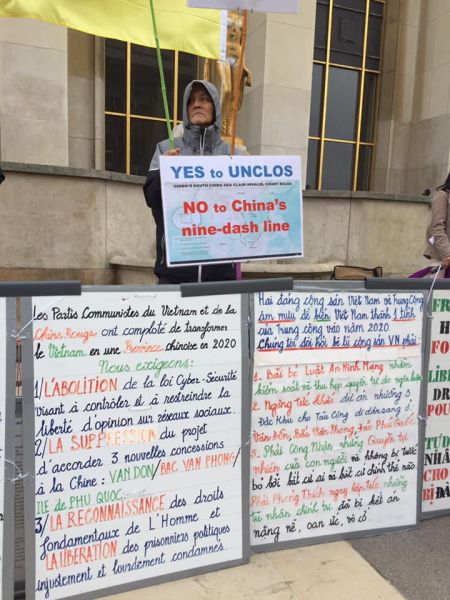 YES to UNCLOS
CHINA'S SOUTH CHINA SEA CLAIM INVALID, COURT RULES
NO to China's
nine-dash line
Les Partis Communistes du Vietnam et de la
Chine Rouge ont comploté de transformer
le Vietnam en une Province chinoise en 2020
Nous exigeons:
1/ L'ABOLITION de la loi Cyber-Sécurité
visant à contrôler et à restreindre la
liberté d'opinion sur réseaux sociaux.
2/ LA SUPPRESSION du projet
d'accorder 3 nouvelles concessions
à la Chine: VAN DON/ BAC VAN PHONG/
ILE DE PHU QUOC.
3/ LA RECONNAISSANCE des droits
fondamentaux de L'Homme et
LA LIBÉRATION des prisonniers politiques
injustement et lourdement condamnés.
Hai đảng cộng sản Việt Nam và Trung Cộng
âm mưu để biến Việt Nam thành 1 tỉnh
của Trung cộng vào năm 2020.
Chúng tôi đòi hỏi bè lũ cộng sản VN phải:
1. Bãi bỏ Luật An Ninh Mạng nhằm
kiểm soát và thu hẹp quyền tự do ngôn luận
2. Ngừng tức khắc dự án nhượng 3
Đặc Khu cho Tàu Cộng di dân sang ở
Vân Đồn, Bắc Vân Phong, Đảo Phú Quốc
3. Phải Công Nhận những Quyền tự
nhiên của con người và không bị tước
bỏ bởi bất cứ ai và bất cứ chính thể nào
Phải Phóng Thích ngay lập tức những
tù nhân chính trị đã bị kết án
nặng nề, oan ức, vô cớ.
FR
H
FO
LIB
DR
POU
TỰ D
NHÂ
CHO
BỊ ĐÀ